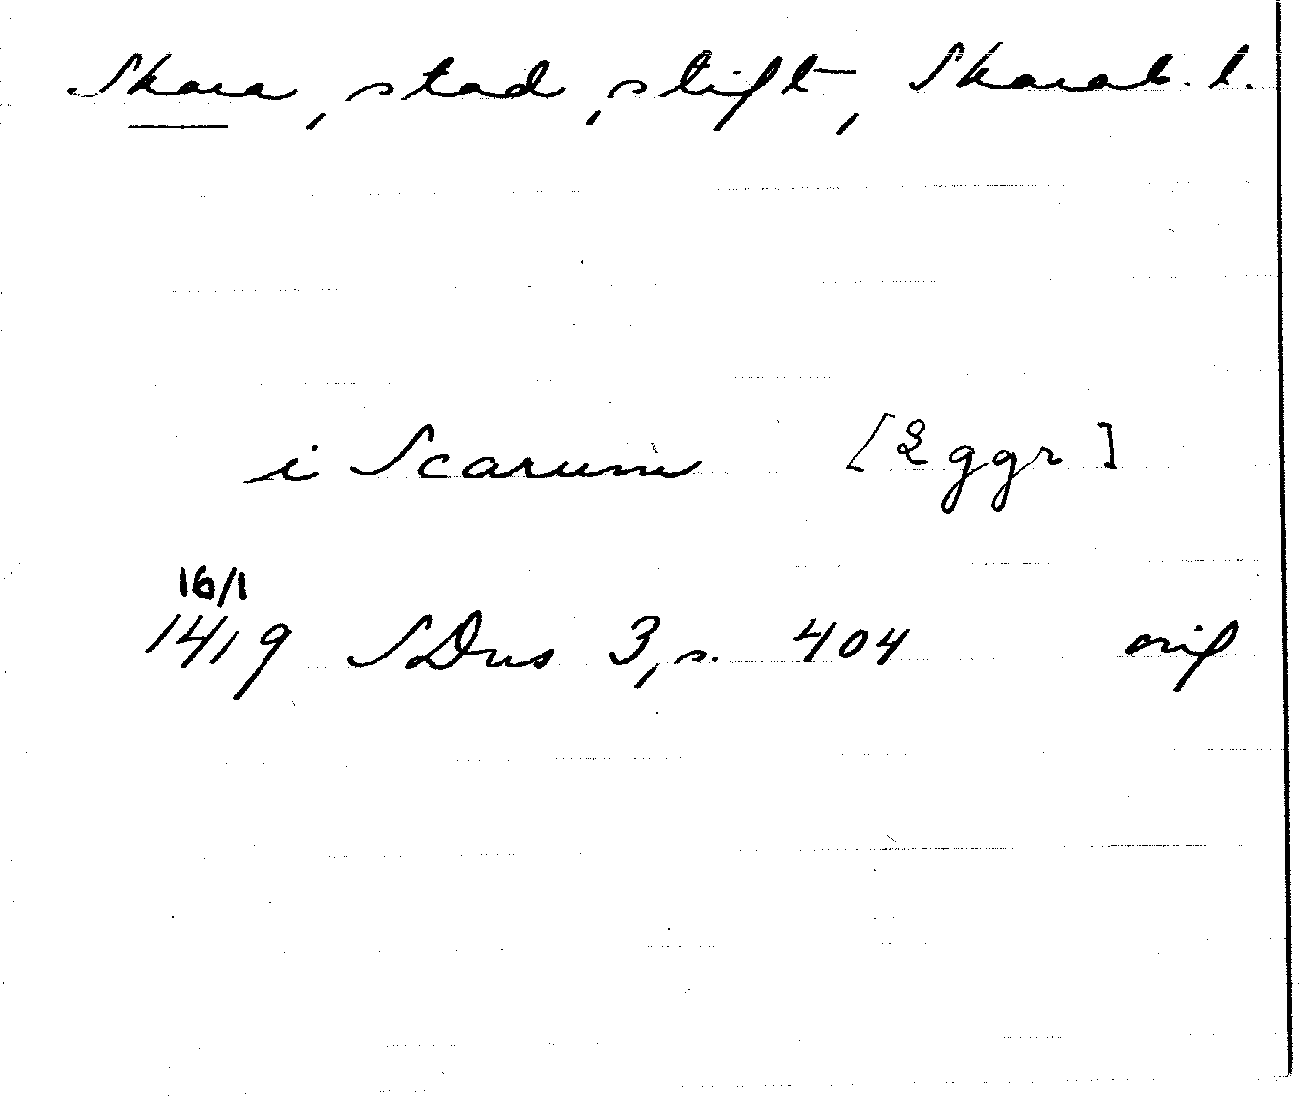 Skara, stad, stift, Skarab. l.
i Scarum [2 ggr]
16/1
1419 SDns 3, s. 404 orig